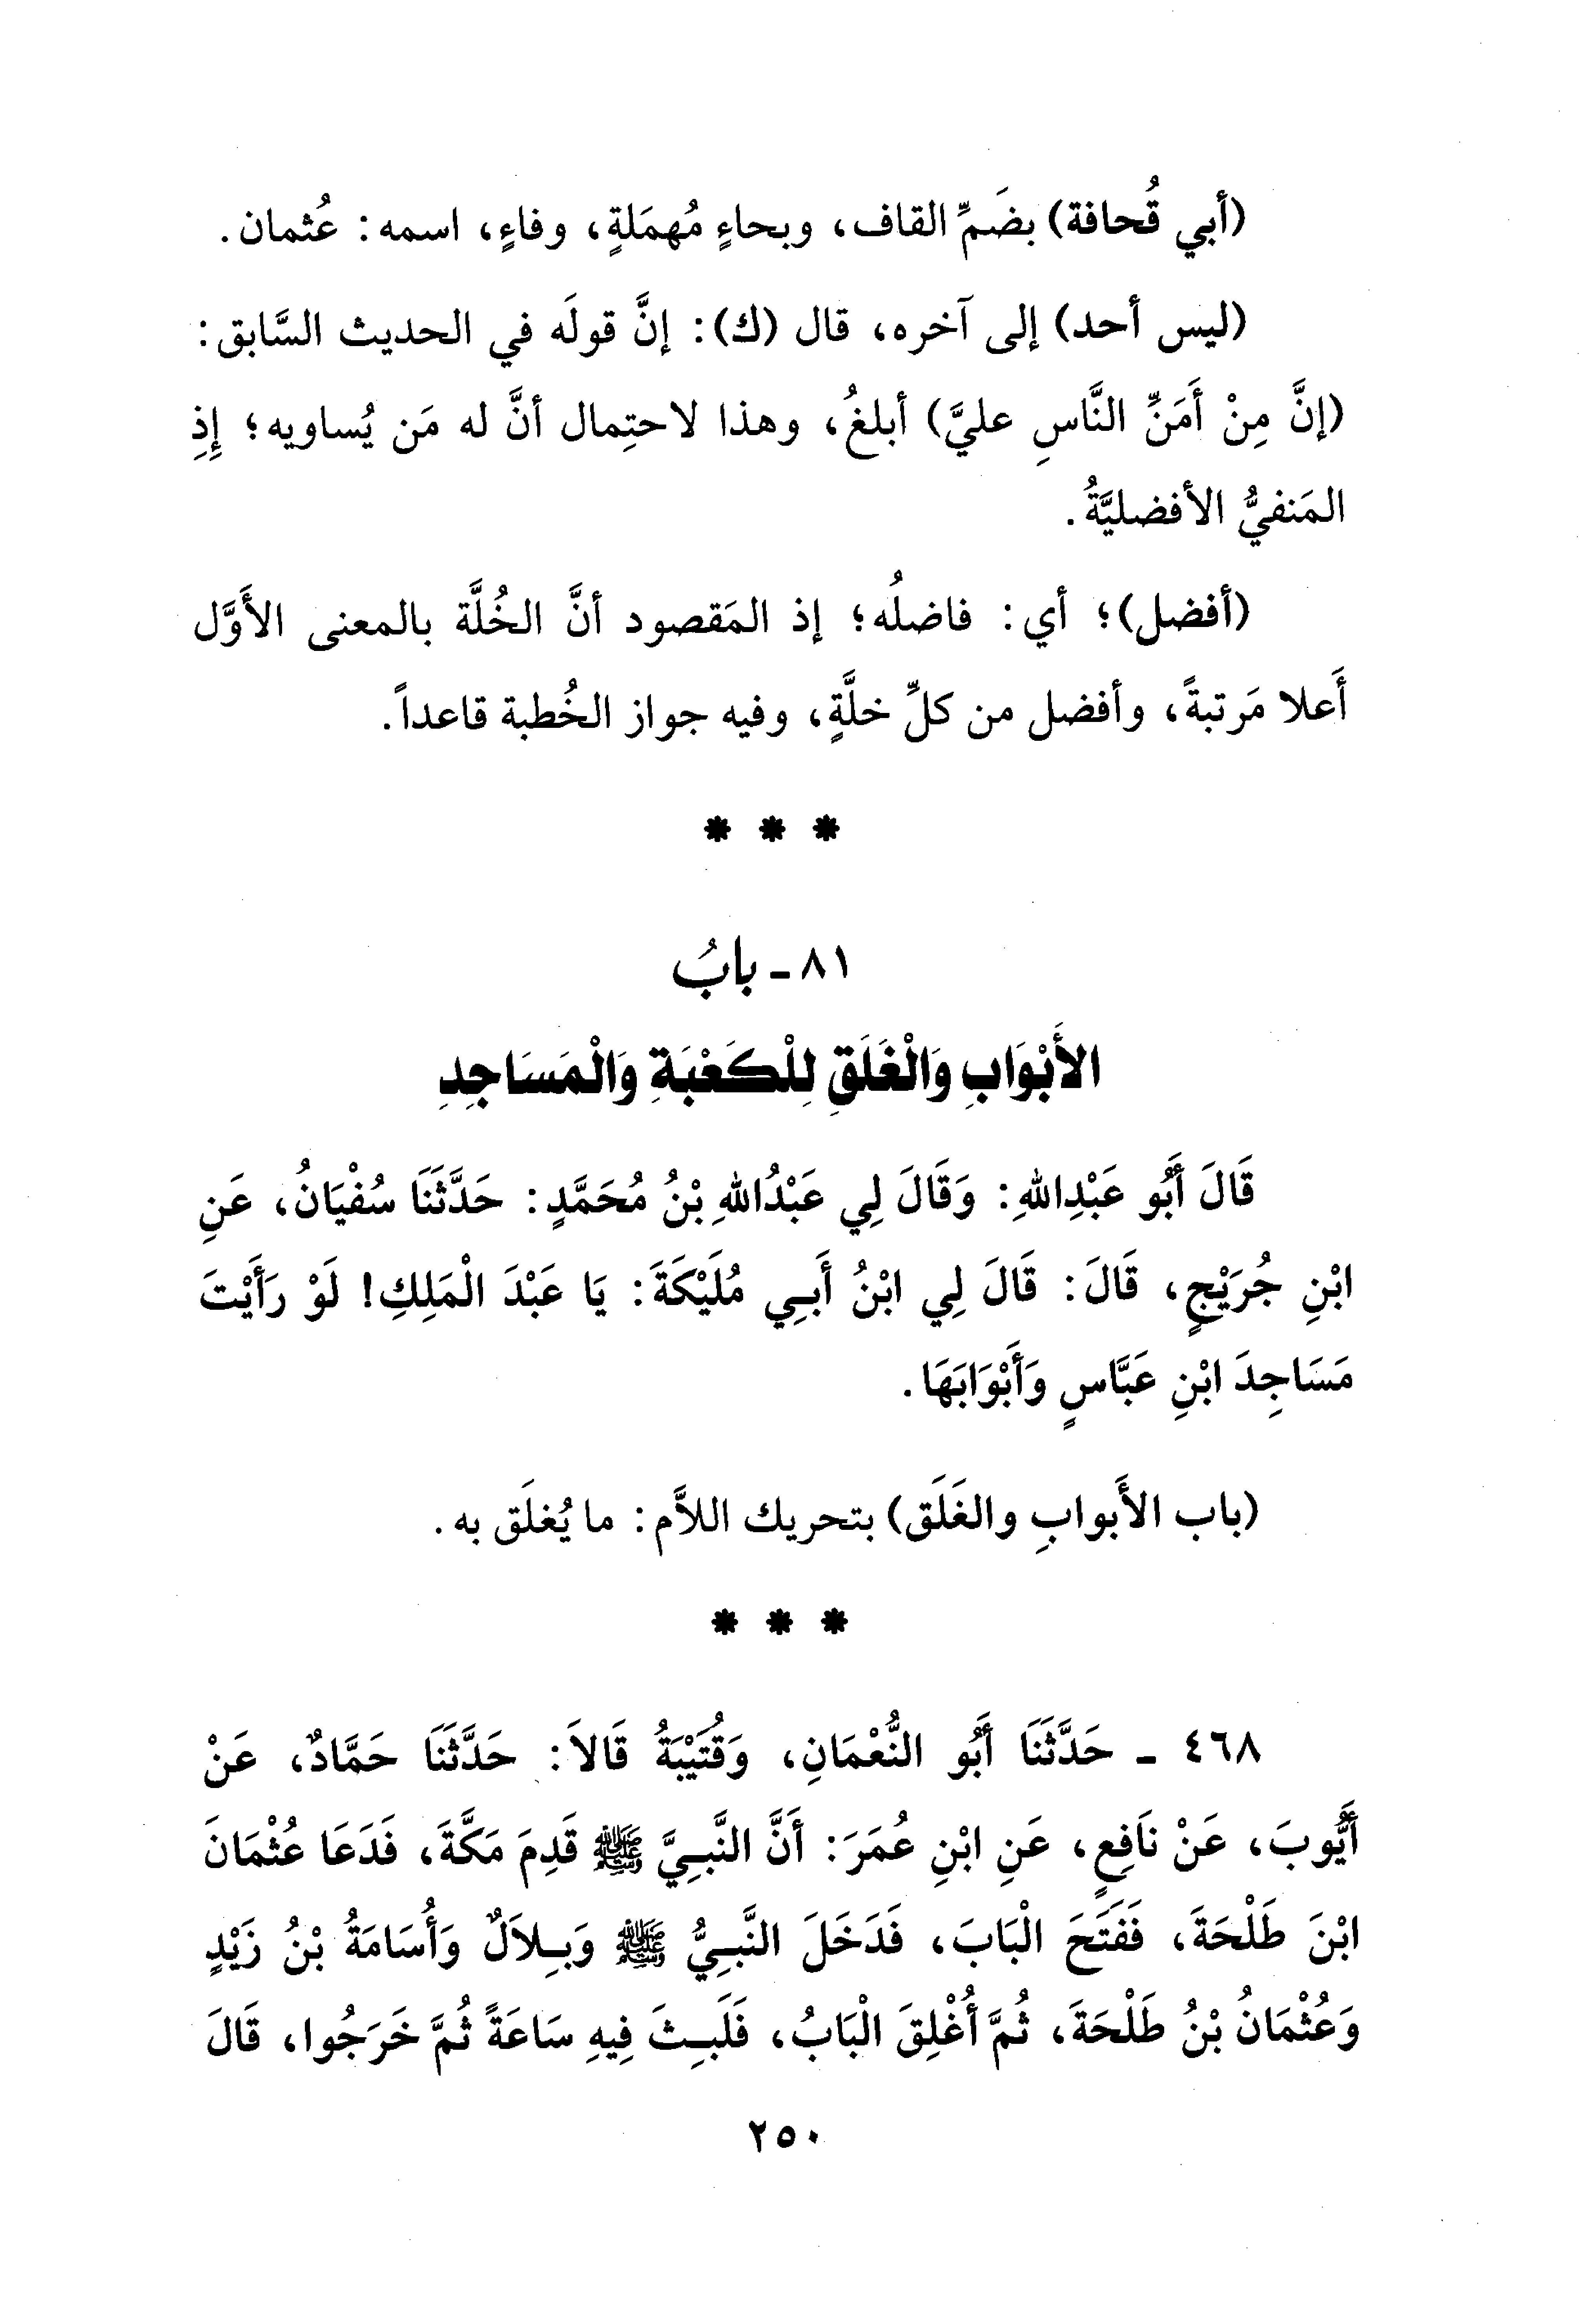 (أبي قُحافة) بضَمِّ القاف، وبحاءٍ مُهمَلةٍ، وفاءٍ، اسمه: عُثمان.
(ليس أحد) إلى آخره، قال (ك): إنَّ قولَه في الحديث السَّابق:
(إنَّ مِنْ أَمَنِّ النَّاسِ عليَّ) أبلغُ، وهذا لاحتِمال أنَّ له مَن يُساويه؛ إِذِ
المَنفيُّ الأفضليَّةُ.
(أفضل)؛ أي: فاضلُه؛ إذ المَقصود أنَّ الخُلَّة بالمعنى الأَوَّل
أَعلا مَرتبةً، وأفضل من كلِّ خلَّةٍ، وفيه جواز الخُطبة قاعداً.
* * *
٨١ - بابُ
الأَبْوَابِ وَالْغَلَقِ لِلْكَعْبَةِ وَالْمَسَاجِدِ
قَالَ أَبُو عَبْدِاللهِ: وَقَالَ لِي عَبْدُاللهِ بْنُ مُحَمَّدٍ: حَدَّثَنَا سُفْيَانُ، عَنِ
ابْنِ جُرَيْجٍ، قَالَ: قَالَ لِي ابْنُ أَبِي مُلَيْكَةَ: يَا عَبْدَ الْمَلِكِ! لَوْ رَأَيْتَ
مَسَاجِدَ ابْنِ عَبَّاسٍ وَأَبْوَابَهَا.
(باب الأَبوابِ والغَلَق) بتحريك اللاَّم: ما يُغلَق به.
* * *
٤٦٨ - حَدَّثَنَا أَبُو النُّعْمَانِ، وَقُتَيْبَةُ قَالاَ: حَدَّثَنَا حَمَّادٌ، عَنْ
أَيُّوبَ، عَنْ نَافِعٍ، عَنِ ابْنِ عُمَرَ: أَنَّ النَّبِيَّ ﷺ قَدِمَ مَكَّةَ، فَدَعَا عُثْمَانَ
ابْنَ طَلْحَةَ، فَفَتَحَ الْبَابَ، فَدَخَلَ النَّبِيُّ ﷺ وَبِلاَلٌ وَأُسَامَةُ بْنُ زَيْدٍ
وَعُثْمَانُ بْنُ طَلْحَةَ، ثُمَّ أُغْلِقَ الْبَابُ، فَلَبِثَ فِيهِ سَاعَةً ثُمَّ خَرَجُوا، قَالَ
٢٥٠